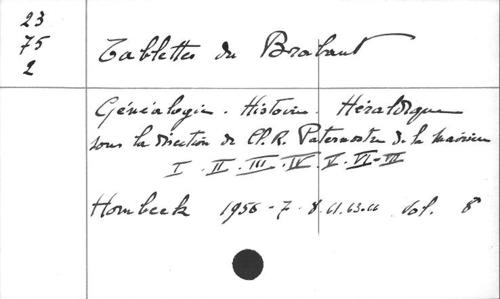 23
75
2
Tablettes du Brabant
Généalogie. Histoire. Héraldique
sous la direction de Cl. R. Paternostre de la Mairieu
I. II. III. IV. V. VI-VII
Hombeek 1956-7-8 61.63.66 Vol. 8°